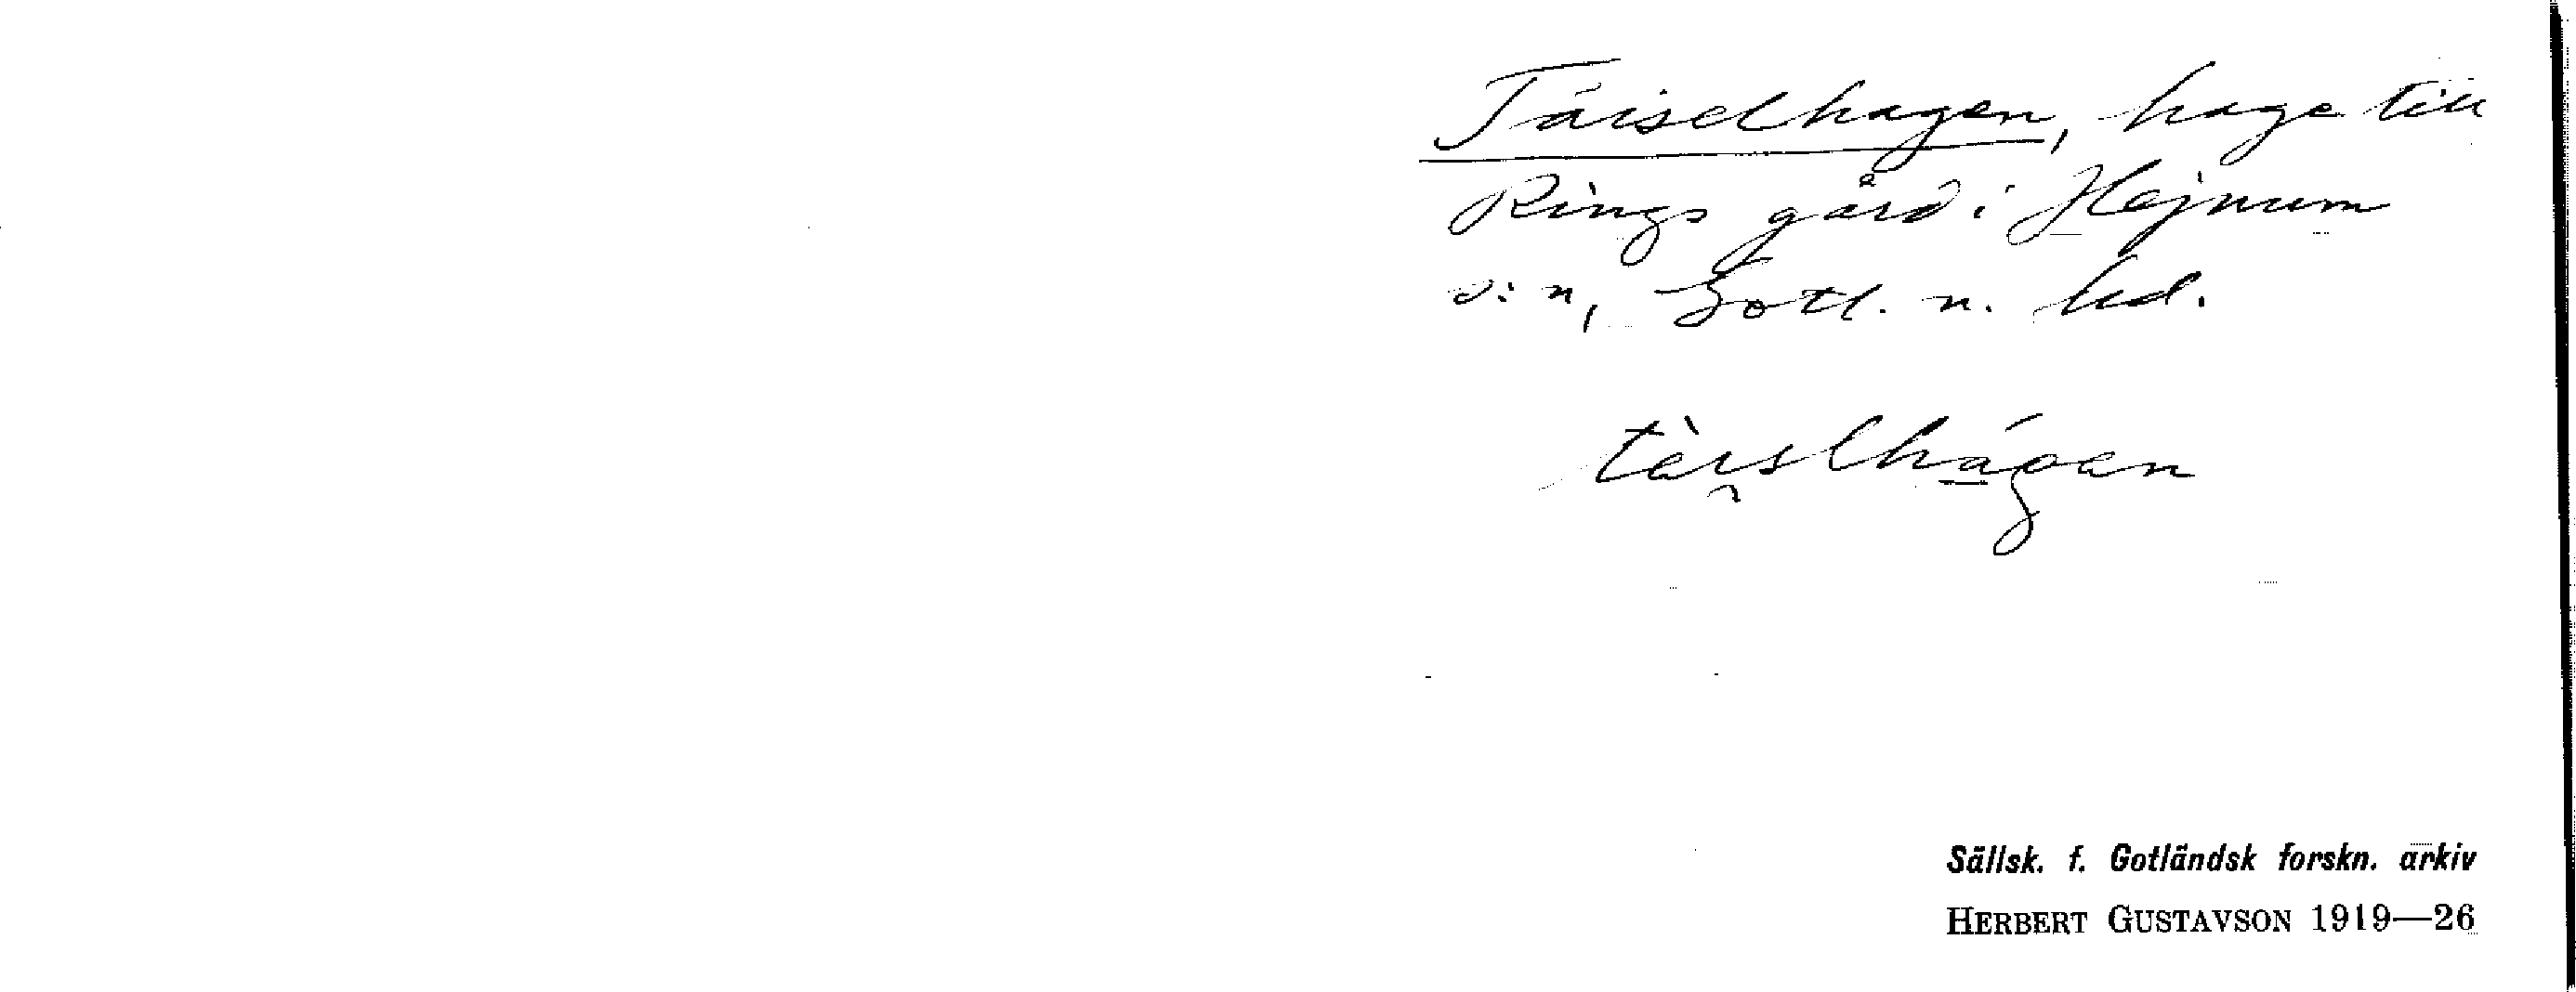 Täiselhagen, hage till
Rings gård i Hejnum
s:n, Gotl. n. hd.
tàislhágen
Sällsk. f. Gotländsk forskn. arkiv
HERBERT GUSTAVSON 1919—26